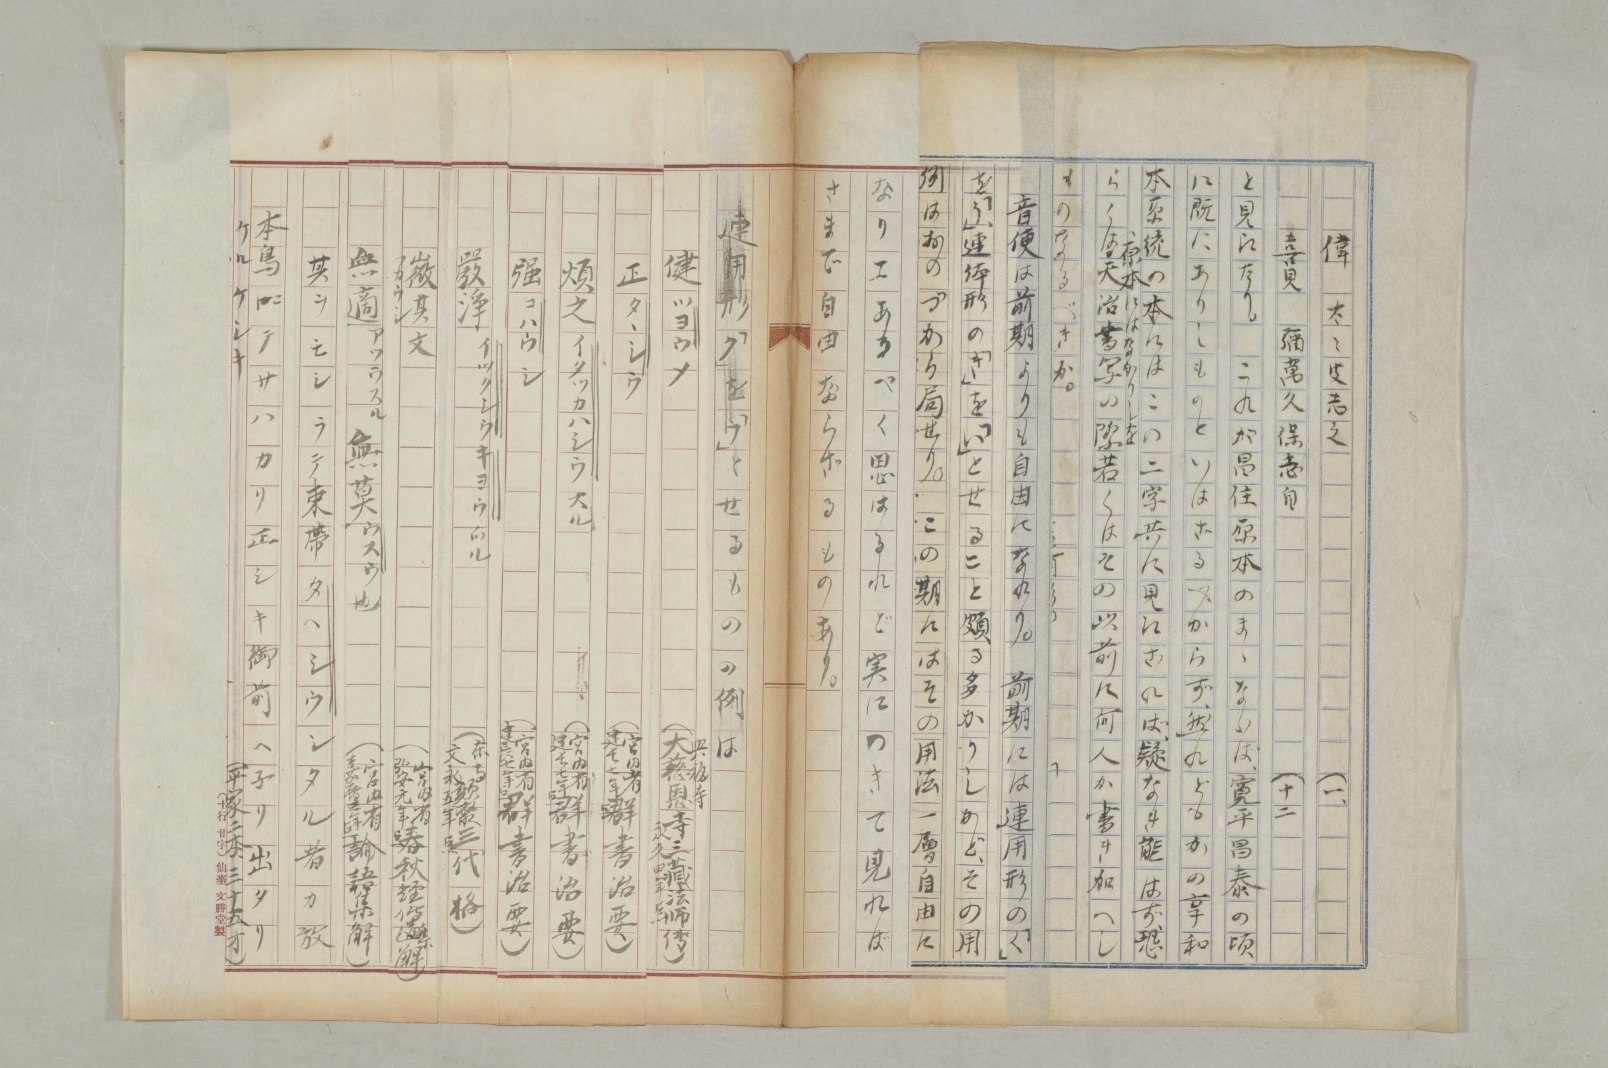 偉 太々波志之 (一、
喜㒵 彌萬久保志自 (十二
と見江たり。これが昌住原本のまゝならば、寛平昌泰の頃
に既にありしものといはざるべからず、然れどもかの享和
本系統の本にはこの二字共に見江ざれば、疑なき能はず恐
原本にはなかりしを
らくは天治書写の際若くはその以前に何人か書き加へし
ものなるべきか。
音便は前期よりも自由になれり。前期には連用形の「く」
を「う」、連体形の「き」を「い」とせること頗る多かりしかど、その用
例はおのづから局せり。この期にはその用法一層自由に
なりエあるべく思はるれど実につきて見れば
さまで自由ならざるものあり。
連用形「ク」を「ウ」とせるものの例は
健ツヨウメ (大慈恩寺三藏法師傳)
興福寺
永久四年点
正タヽシウ (宮内省群書治要)
建長七年点
煩之イタツカハシウ大ル (宮内省群書治要)
建長七年点
强コハウシ (宮内省群書治要)
嚴淨イツクシウキヨウㇱル (三代格)
文永五年点
嶶其文 (宮内省春秋経傳集解)
弘安元年点
無適アツウスル 無莫ウスウ也 (宮内省論語集解)
其ヲモシラテ束帶タヘシウシタル者カ放
本鳥ニテサハカリ正シキ御前ヘ子リ出タリ
ケルケシキ (平家二本三十五オ)
(十行廿字) 仙臺 文勝堂製